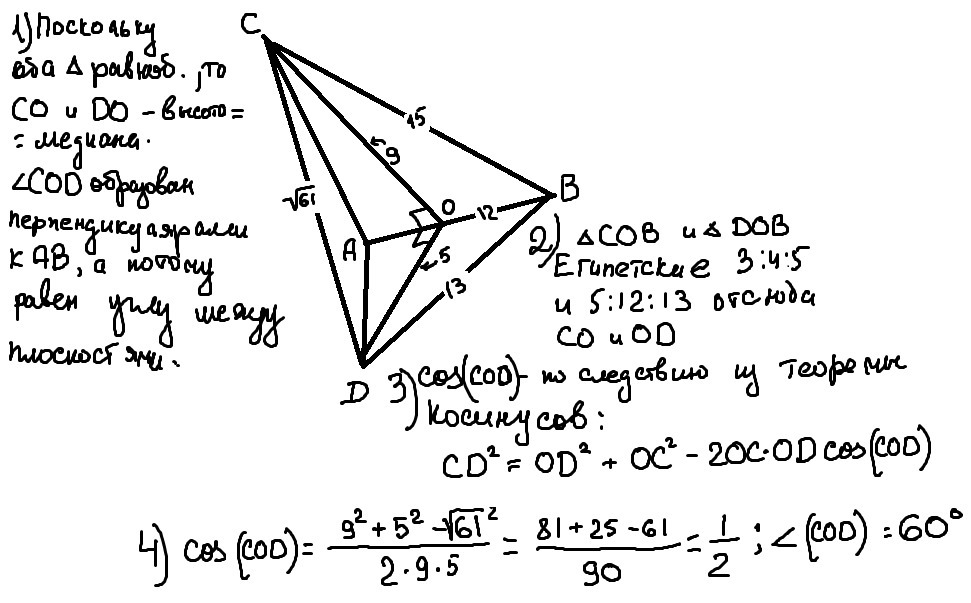 1) Поскольку
оба Δ равноб., то
CO и DO – высота =
= медиана.
∠COD образован
перпендикулярами
к AB, а потому
равен углу между
плоскостями.
C
15
9
√61
O
12
B
A
5
13
D
2) ΔCOB и Δ DOB
Египетские 3:4:5
и 5:12:13 отсюда
CO и OD
3) cos(COD) - по следствию из Теоремы
Косинусов:
CD² = OD² + OC² - 2OC·OD cos(COD)
4) cos(COD) = (9² + 5² - √61²)/(2·9·5) = (81 + 25 - 61)/90 = 1/2 ; ∠(COD) = 60°